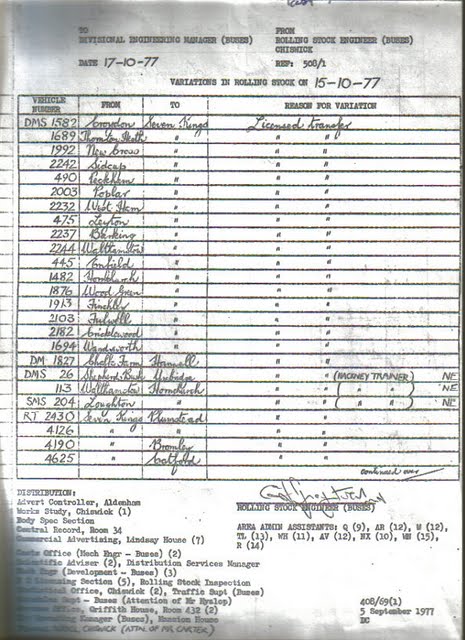 TO
DIVISIONAL ENGINEERING MANAGER (BUSES)
FROM
ROLLING STOCK ENGINEER (BUSES)
CHISWICK
DATE 17-10-77
REF: 508/1
VARIATIONS IN ROLLING STOCK ON 15-10-77
VEHICLE NUMBER FROM TO REASON FOR VARIATION
DMS 1582 Croydon Seven Kings Licensed transfer
1689 Thornton Heath " " "
1992 New Cross " " "
2242 Sidcup " " "
490 Peckham " " "
2003 Poplar " " "
2232 West Ham " " "
475 Leyton " " "
2237 Barking " " "
2244 Walthamstow " " "
445 Enfield " " "
1482 Hornchurch " " "
1876 Wood Green " " "
1913 Finchley " " "
2103 Fulwell " " "
2182 Cricklewood " " "
1694 Wandsworth " " "
DM 1827 Chalk Farm Hanwell " "
DMS 26 Shepherd's Bush Uxbridge " " (HACKNEY TRAINER) NE
113 Walthamstow Hornchurch " " ( " " ) NE
SMS 204 Loughton " " " ( " " ) NE
RT 2430 Seven Kings Plumstead " "
4126 " " " "
4190 " Bromley " "
4625 " Catford " "
continued over
DISTRIBUTION:
Advert Controller, Aldenham
Works Study, Chiswick (1)
Body Spec Section
Central Record, Room 34
Commercial Advertising, Lindsay House (7)
ROLLING STOCK ENGINEER (BUSES)
AREA ADMIN ASSISTANTS: Q (9), AR (12), W (12),
TL (13), WH (11), AV (12), NX (10), WN (15),
R (14)
Costs Office (Mech Engr - Buses) (2)
Scientific Adviser (2), Distribution Services Manager
Engr (Development - Buses) (3)
Licensing Section (5), Rolling Stock Inspection
Office, Chiswick (2), Traffic Supt (Buses)
Supt - Buses (Attention of Mr Hyslop)
Office, Griffith House, Room 432 (2)
Manager (Buses), Mansion House
CHISWICK (ATTN. OF MR CARTER)
408/69(1)
5 September 1977
DC